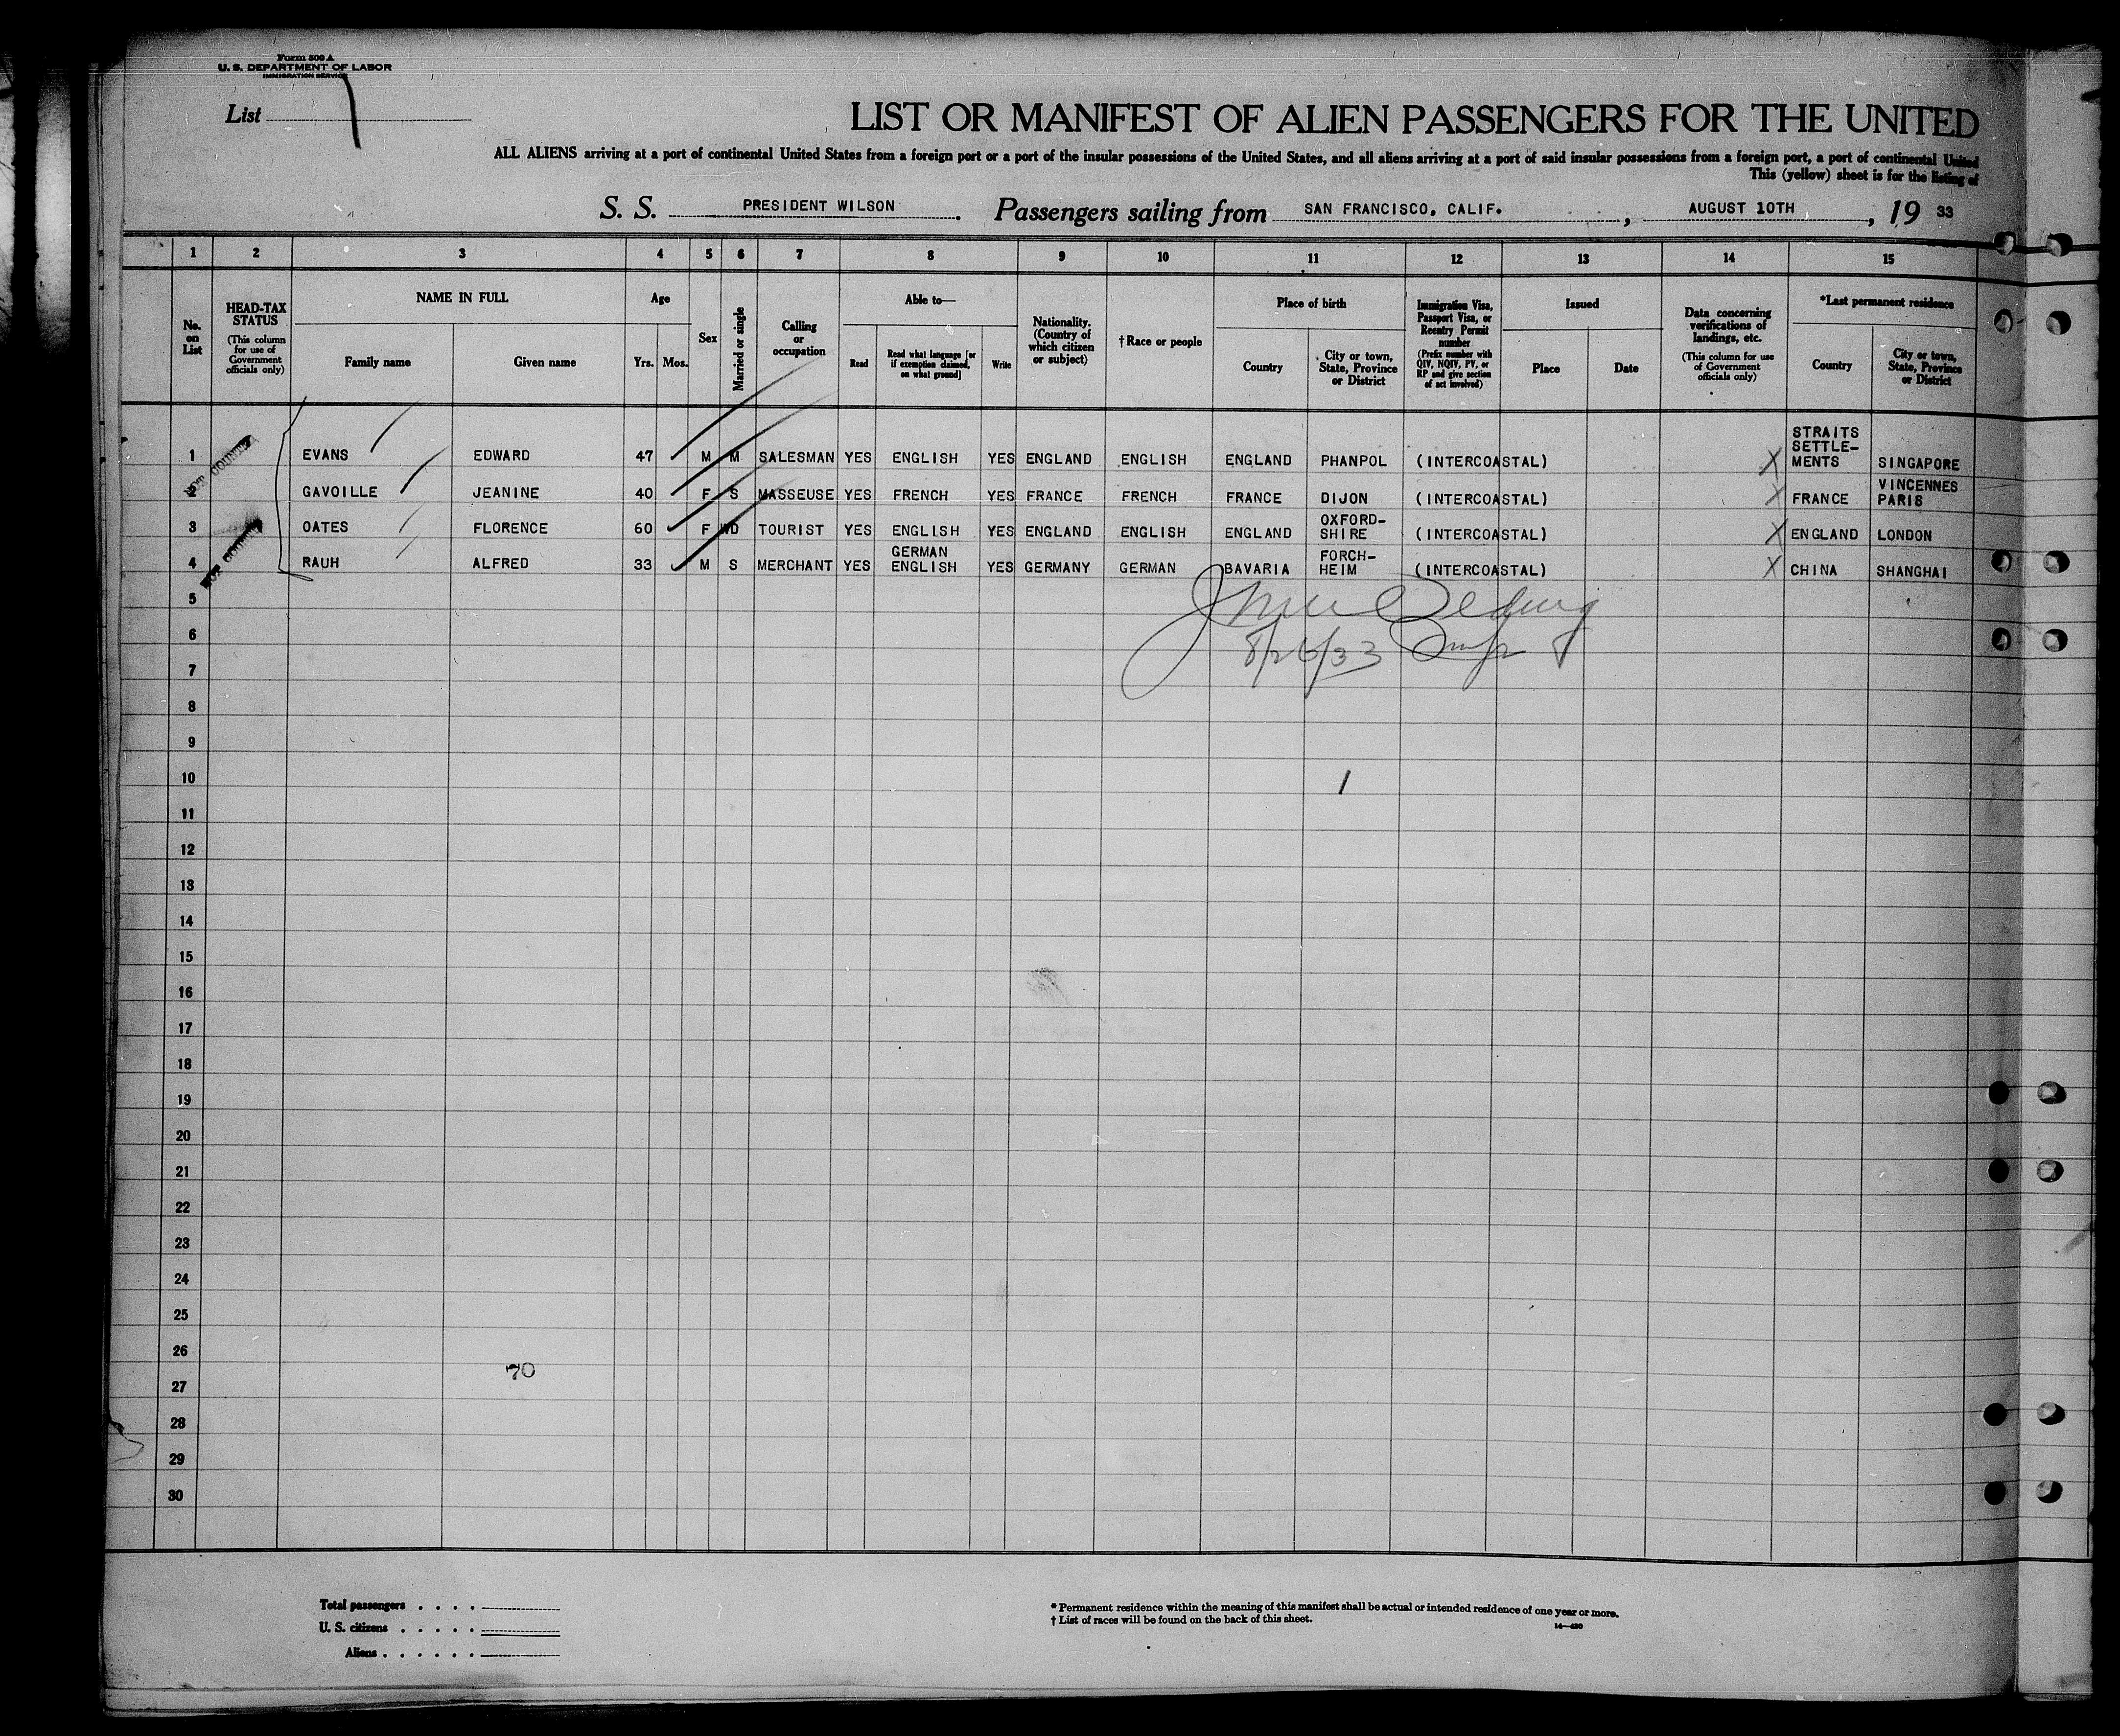 Form 500 A
U. S. DEPARTMENT OF LABOR
IMMIGRATION SERVICE
List 7
LIST OR MANIFEST OF ALIEN PASSENGERS FOR THE UNITED
ALL ALIENS arriving at a port of continental United States from a foreign port or a port of the insular possessions of the United States, and all aliens arriving at a port of said insular possessions from a foreign port, a port of continental United
This (yellow) sheet is for the listing of
S. S. PRESIDENT WILSON. Passengers sailing from SAN FRANCISCO, CALIF., AUGUST 10TH, 19 33
1 2 3 4 5 6 7 8 9 10 11 12 13 14 15
No. on List
HEAD-TAX STATUS
(This column for use of Government officials only)
NAME IN FULL
Family name
Given name
Age
Yrs. Mos.
Sex
Married or single
Calling or occupation
Able to—
Read
Read what language [or if exemption claimed, on what ground]
Write
Nationality. (Country of which citizen or subject)
†Race or people
Place of birth
Country
City or town, State, Province or District
Immigration Visa, Passport Visa, or Reentry Permit number
(Prefix number with QIV, NQIV, PV, or RP and give section of act involved)
Issued
Place
Date
Data concerning verifications of landings, etc.
(This column for use of Government officials only)
*Last permanent residence
Country
City or town, State, Province or District
1 NOT COUNTED EVANS EDWARD 47 M M SALESMAN YES ENGLISH YES ENGLAND ENGLISH ENGLAND PHANPOL (INTERCOASTAL) X STRAITS SETTLE-MENTS SINGAPORE
2 GAVOILLE JEANINE 40 F S MASSEUSE YES FRENCH YES FRANCE FRENCH FRANCE DIJON (INTERCOASTAL) X FRANCE VINCENNES PARIS
3 NOT COUNTED OATES FLORENCE 60 F WD TOURIST YES ENGLISH YES ENGLAND ENGLISH ENGLAND OXFORD-SHIRE (INTERCOASTAL) X ENGLAND LONDON
4 RAUH ALFRED 33 M S MERCHANT YES GERMAN ENGLISH YES GERMANY GERMAN BAVARIA FORCH-HEIM (INTERCOASTAL) X CHINA SHANGHAI
5
6 8/26/33
7
8
9
10
11
12
13
14
15
16
17
18
19
20
21
22
23
24
25
26
70
27
28
29
30
Total passengers . . . .
U. S. citizens . . . . .
Aliens . . . . . .
* Permanent residence within the meaning of this manifest shall be actual or intended residence of one year or more.
† List of races will be found on the back of this sheet.
14—430